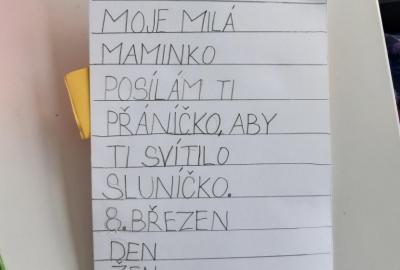 MOJE MILÁ
MAMINKO
POSÍLÁM TI
PŘÁNÍČKO, ABY
TI SVÍTILO
SLUNÍČKO.
8. BŘEZEN
DEN
ŽEN